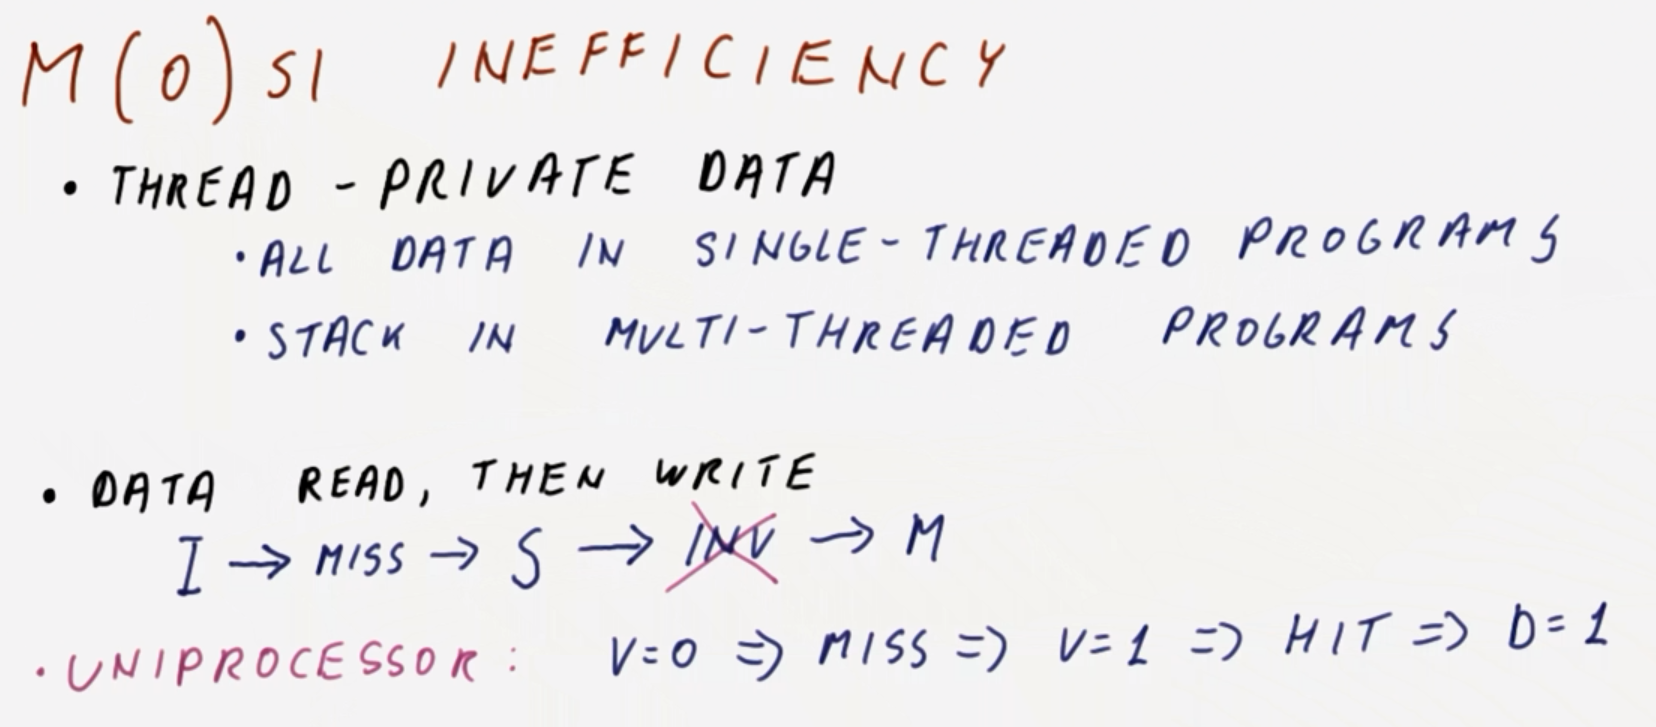 M(O)SI INEFFICIENCY
• THREAD-PRIVATE DATA
• ALL DATA IN SINGLE-THREADED PROGRAMS
• STACK IN MULTI-THREADED PROGRAMS
• DATA READ, THEN WRITE
I → MISS → S → INV → M
• UNIPROCESSOR: V=0 ⇒ MISS ⇒ V=1 ⇒ HIT ⇒ D=1